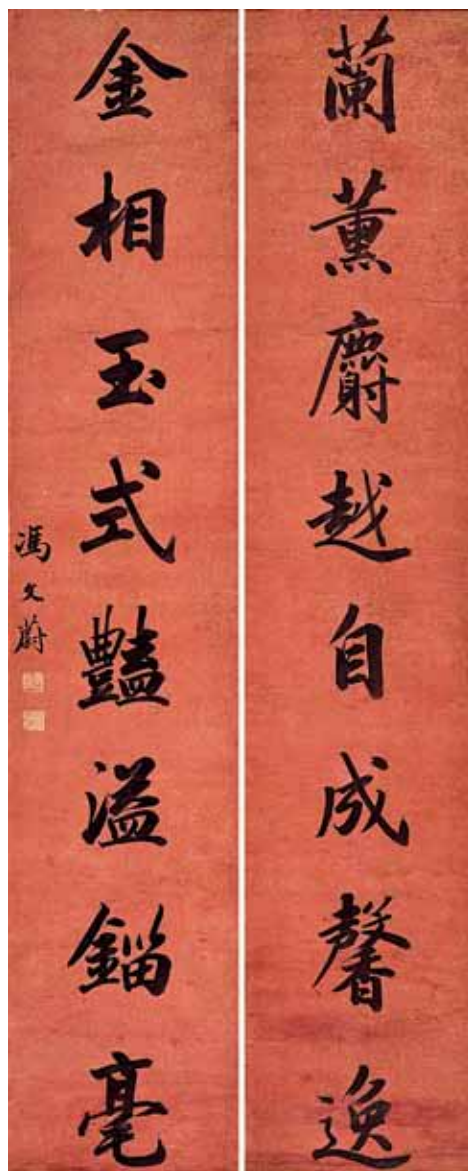 蘭薰麝越自成馨逸
金相玉式豔溢錙毫
馮文蔚